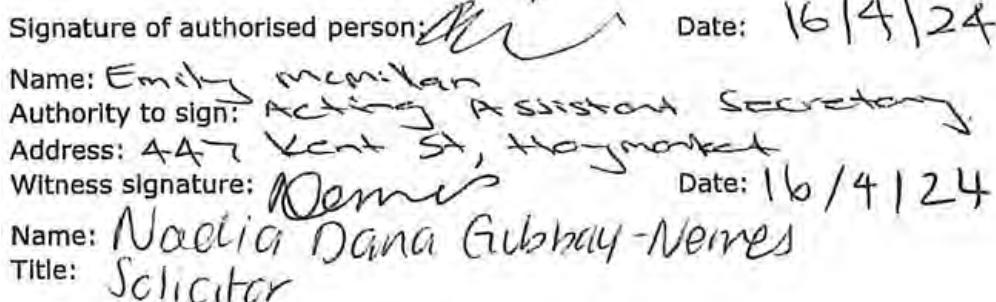 Signature of authorised person: Date: 16/4/24
Name: Emily McMillan
Authority to sign: Acting Assistant Secretary
Address: 447 Kent St, Haymarket
Witness signature: Nemes Date: 16/4/24
Name: Nadia Dana Gubbay-Nemes
Title: Solicitor